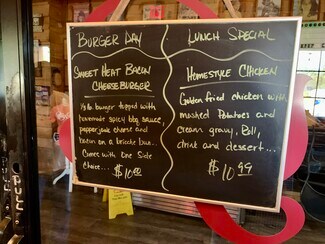 BURGER DAY
SWEET HEAT BACON
CHEESEBURGER
1/2 lb. burger topped with
homemade spicy bbq sauce,
pepperjack cheese and
bacon on a brioche bun...
Comes with One Side
Choice...
$10.00
LUNCH SPECIAL
HOMESTYLE CHICKEN
Golden fried chicken with
mashed Potatoes and
cream gravy, Roll,
drink and dessert...
$10.99
PULL